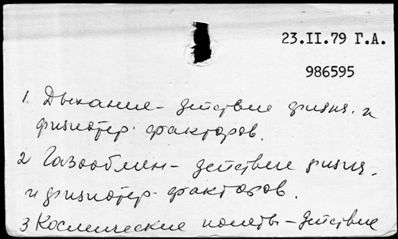 23.II.79 Г.А.
986595
1. Дыхание - действие физич. и
физиотер. факторов.
2 Газообмен - действие физич.
и физиотер. факторов.
3 Космические полеты - действие